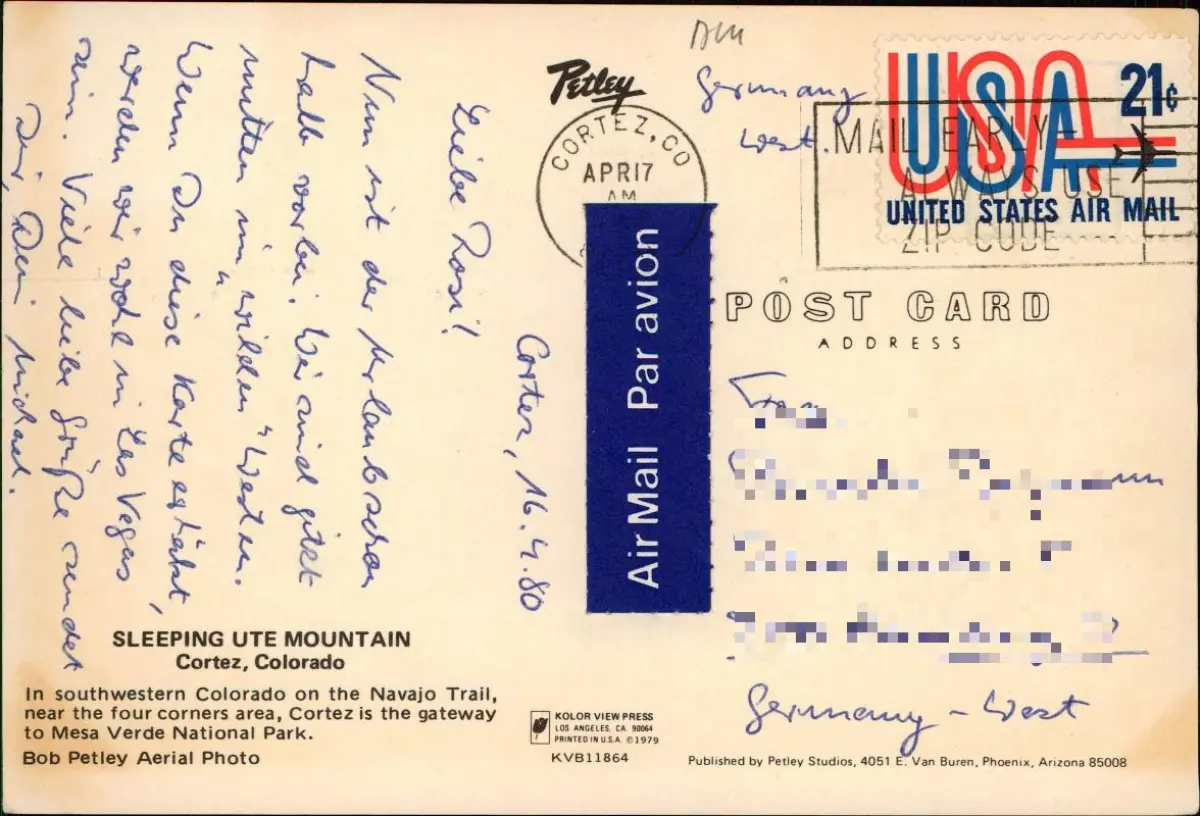 Cortez, 16.4.80
Liebe Rosi!
Nun ist der Urlaub schon
halb vorbei. Wir sind jetzt
mitten im „wilden“ Westen.
Wenn Du diese Karte erhälst,
werden wir wohl in Les Vegas
sein. Viele liebe Grüße sendet
Dir, Dein Michael.
SLEEPING UTE MOUNTAIN
Cortez, Colorado
In southwestern Colorado on the Navajo Trail,
near the four corners area, Cortez is the gateway
to Mesa Verde National Park.
Bob Petley Aerial Photo
Petley
CORTEZ, CO
APR 17
AM
Air Mail Par avion
KOLOR VIEW PRESS
LOS ANGELES, CA. 90064
PRINTED IN U.S.A. ©1979
KVB11864
Germany
West.
USA 21¢
UNITED STATES AIR MAIL
MAIL EARLY—
ALWAYS USE
ZIP CODE
POST CARD
ADDRESS
Frau
Germany - West
Published by Petley Studios, 4051 E. Van Buren, Phoenix, Arizona 85008